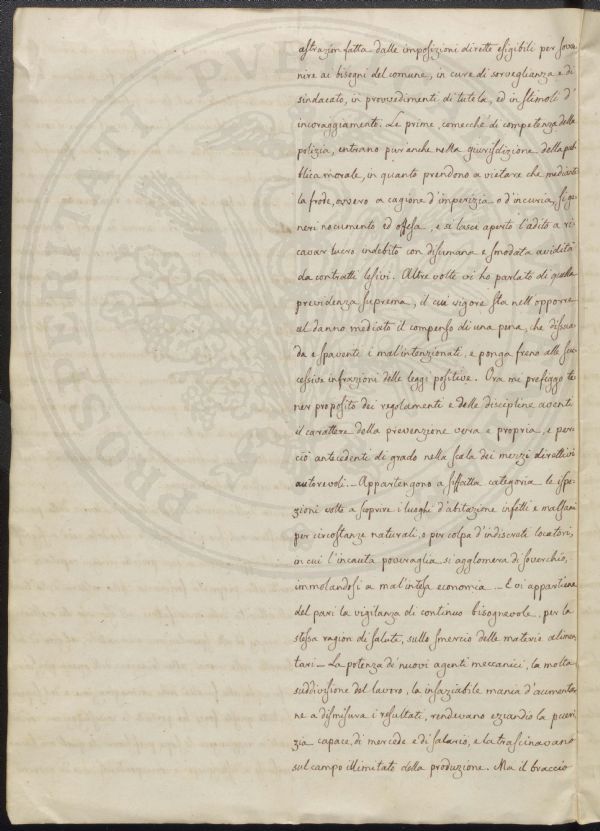 astrazion fatta dalle imposizioni dirette esigibili per sovve
nire ai bisogni del comune, in cure di sorveglianza e di
sindacato, in provvedimenti di tutela, ed in stimoli d'
incoraggiamento. Le prime, comecchè di competenza della
polizia, entrano pur'anche nella giurisdizione della pub
blica morale, in quanto prendono a vietare che mediante
la frode, ovvero a cagione d'imperizia o d'incuria, si ge
neri nocumento ed offesa, e si lasci aperto l'adito a ri
cavar lucro indebito con disumana e smodata avidità
da contratti lesivi. Altre volte vi ho parlato di quella
previdenza suprema, il cui vigore sta nell'opporre
al danno mediato il compenso di una pena, che dissua
da e spaventi i mal'intenzionati, e ponga freno alle suc
cessive infrazioni delle leggi positive. Ora mi prefiggo te
ner proposito dei regolamenti e delle discipline aventi
il carattere della prevenzione vera e propria, e per
ciò antecedenti di grado nella scala dei mezzi direttivi
autorevoli. _ Appartengono a siffatta categoria le ispe
zioni volte a scoprire i luoghi d'abitazione infetti e malsani
per circostanze naturali, o per colpa d'indiscreti locatori,
in cui l'incauta poveraglia si agglomera di soverchio,
immolandosi a mal'intesa economia _ E vi appartiene
del pari la vigilanza di continuo bisognevole, per la
stessa ragion di salute, sullo smercio delle materie alimen
tari _ La potenza di nuovi agenti meccanici, la molta
suddivisione del lavoro, la insaziabile mania d'aumentar
ne a dismisura i resultati, rendevano eziandio la pueri
zia capace di mercede e di salario, e la trascinavano
sul campo illimitato della produzione. Ma il braccio